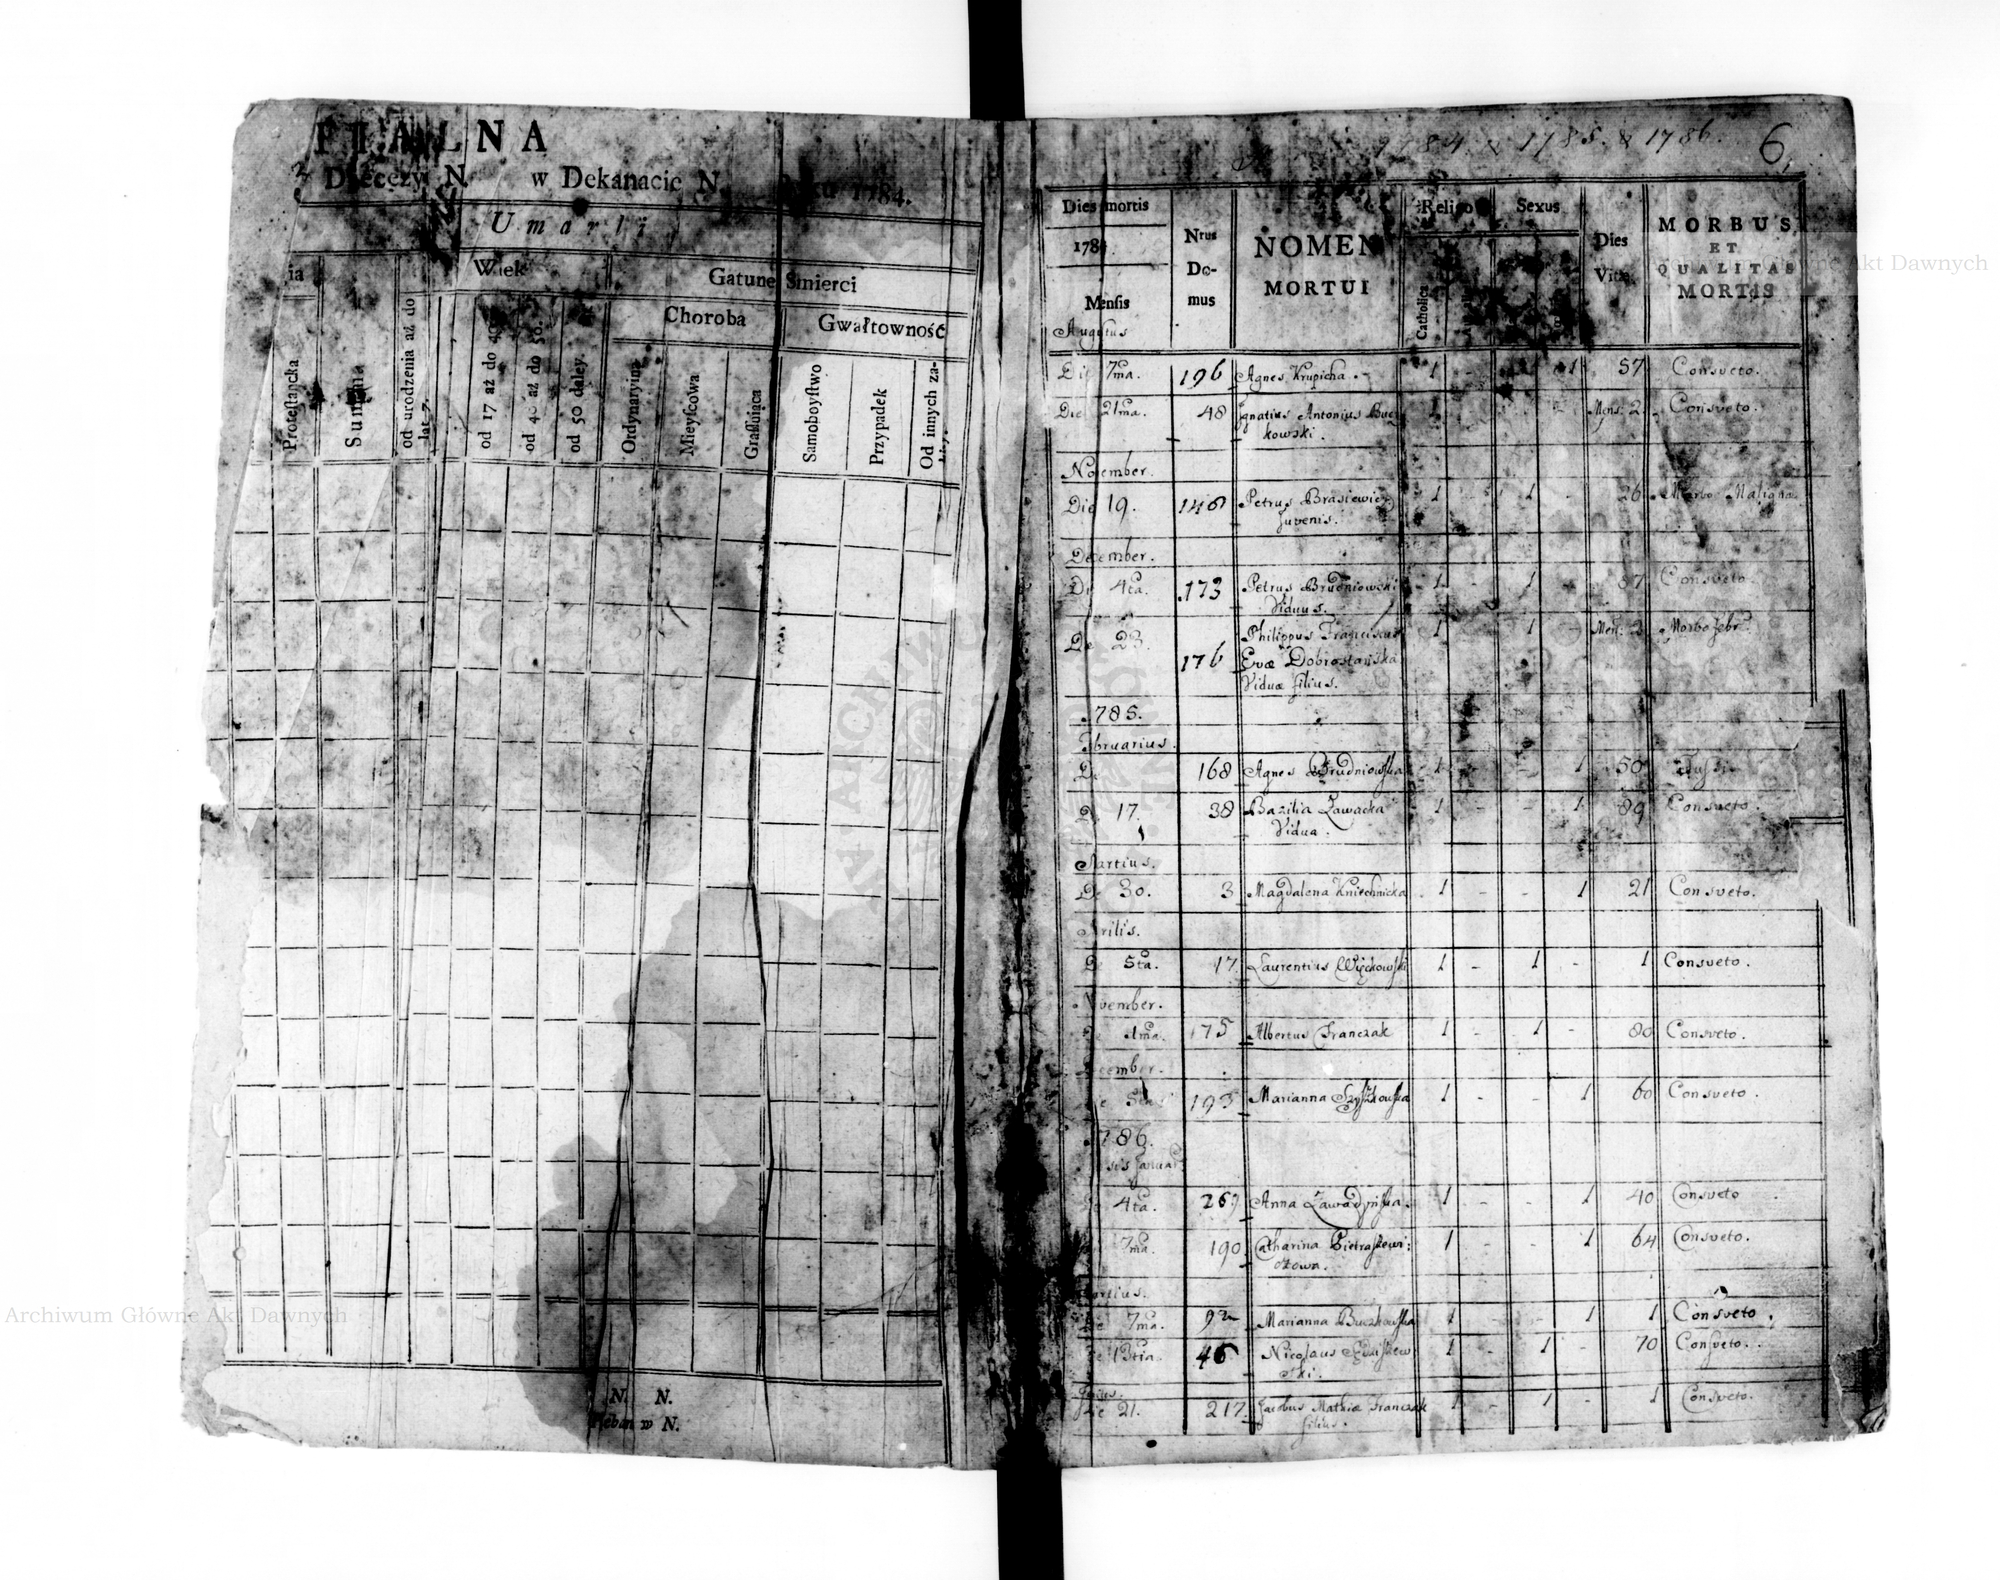 NA
Diecezyi N. w Dekanacie N. Roku 1784.
Umarli
Wiek
Gatunek Smierci
Choroba
Gwałtowność
Protestancka
Summa
od urodzenia aż do lat 7.
od 17 aż do 40.
od 40 aż do 50.
od 50 daley.
Ordynaryina
Mieyſcowa
Graſſuiąca
Samoboyſtwo
Przypadek
Od innych za-
N. N.
Pleban w N.
1784. & 1785. & 1786. 6.
Dies mortis
178
Menſis
Nrus
Do-
mus
NOMEN
MORTUI
Religio
Catholica
Sexus
Dies
Vitæ
MORBUS
ET
QUALITAS
MORTIS
Augustus
Die 7ma. 196 Agnes Krupicha. 1 - - 1 57 Consveto.
Die 21ma. 48 Ignatius Antonius Bucz
kowski. 1 Mens. 2. Consveto.
November.
Die 19. 148 Petrus Brasiewicz 1 - 1 - 26 Morbo Maligna.
Juvenis.
December.
Die 4ta. 173 Petrus Brudniowski 1 1 - 87 Consveto.
Viduus.
Die 23. 176 Philippus Franciscus 1 1 - Men. 3 Morbo febr.
Evæ Dobrostańska
Viduæ filius.
1785.
Februarius.
168 Agnes Brudniowſka 1 - - 1 50 Tussi.
17. 38 Bazilia Zawacka 1 - - 1 89 Consveto.
Vidua.
Martius.
De 30. 3 Magdalena Kniechnicka 1 - - 1 21 Consveto.
Aprilis.
De 5ta. 17 Laurentius Więckowſki 1 - 1 - 1 Consveto.
November.
De 1ma. 175 Albertus Franczak 1 - 1 - 80 Consveto.
December.
5ta 193 Marianna Szyſzkowſka 1 - - 1 60 Consveto.
1786.
Januar
4ta. 269 Anna Zawadzińſka. 1 - - 1 40 Consveto
7ma. 190 Catharina Pietraſzewi: 1 - - 1 64 Consveto.
czowa.
Martius.
7ma. 92 Marianna Buczkowſka 1 - - 1 1 Consveto.
13tia. 46 Nicolaus 1 - 1 - 70 Conſveto.
ſki.
Die 21. 217. Jacobus Mathiæ Franczak 1 - 1 - 1 Consveto.
filius.
Archiwum Główne Akt Dawnych
Archiwum Główne Akt Dawnych